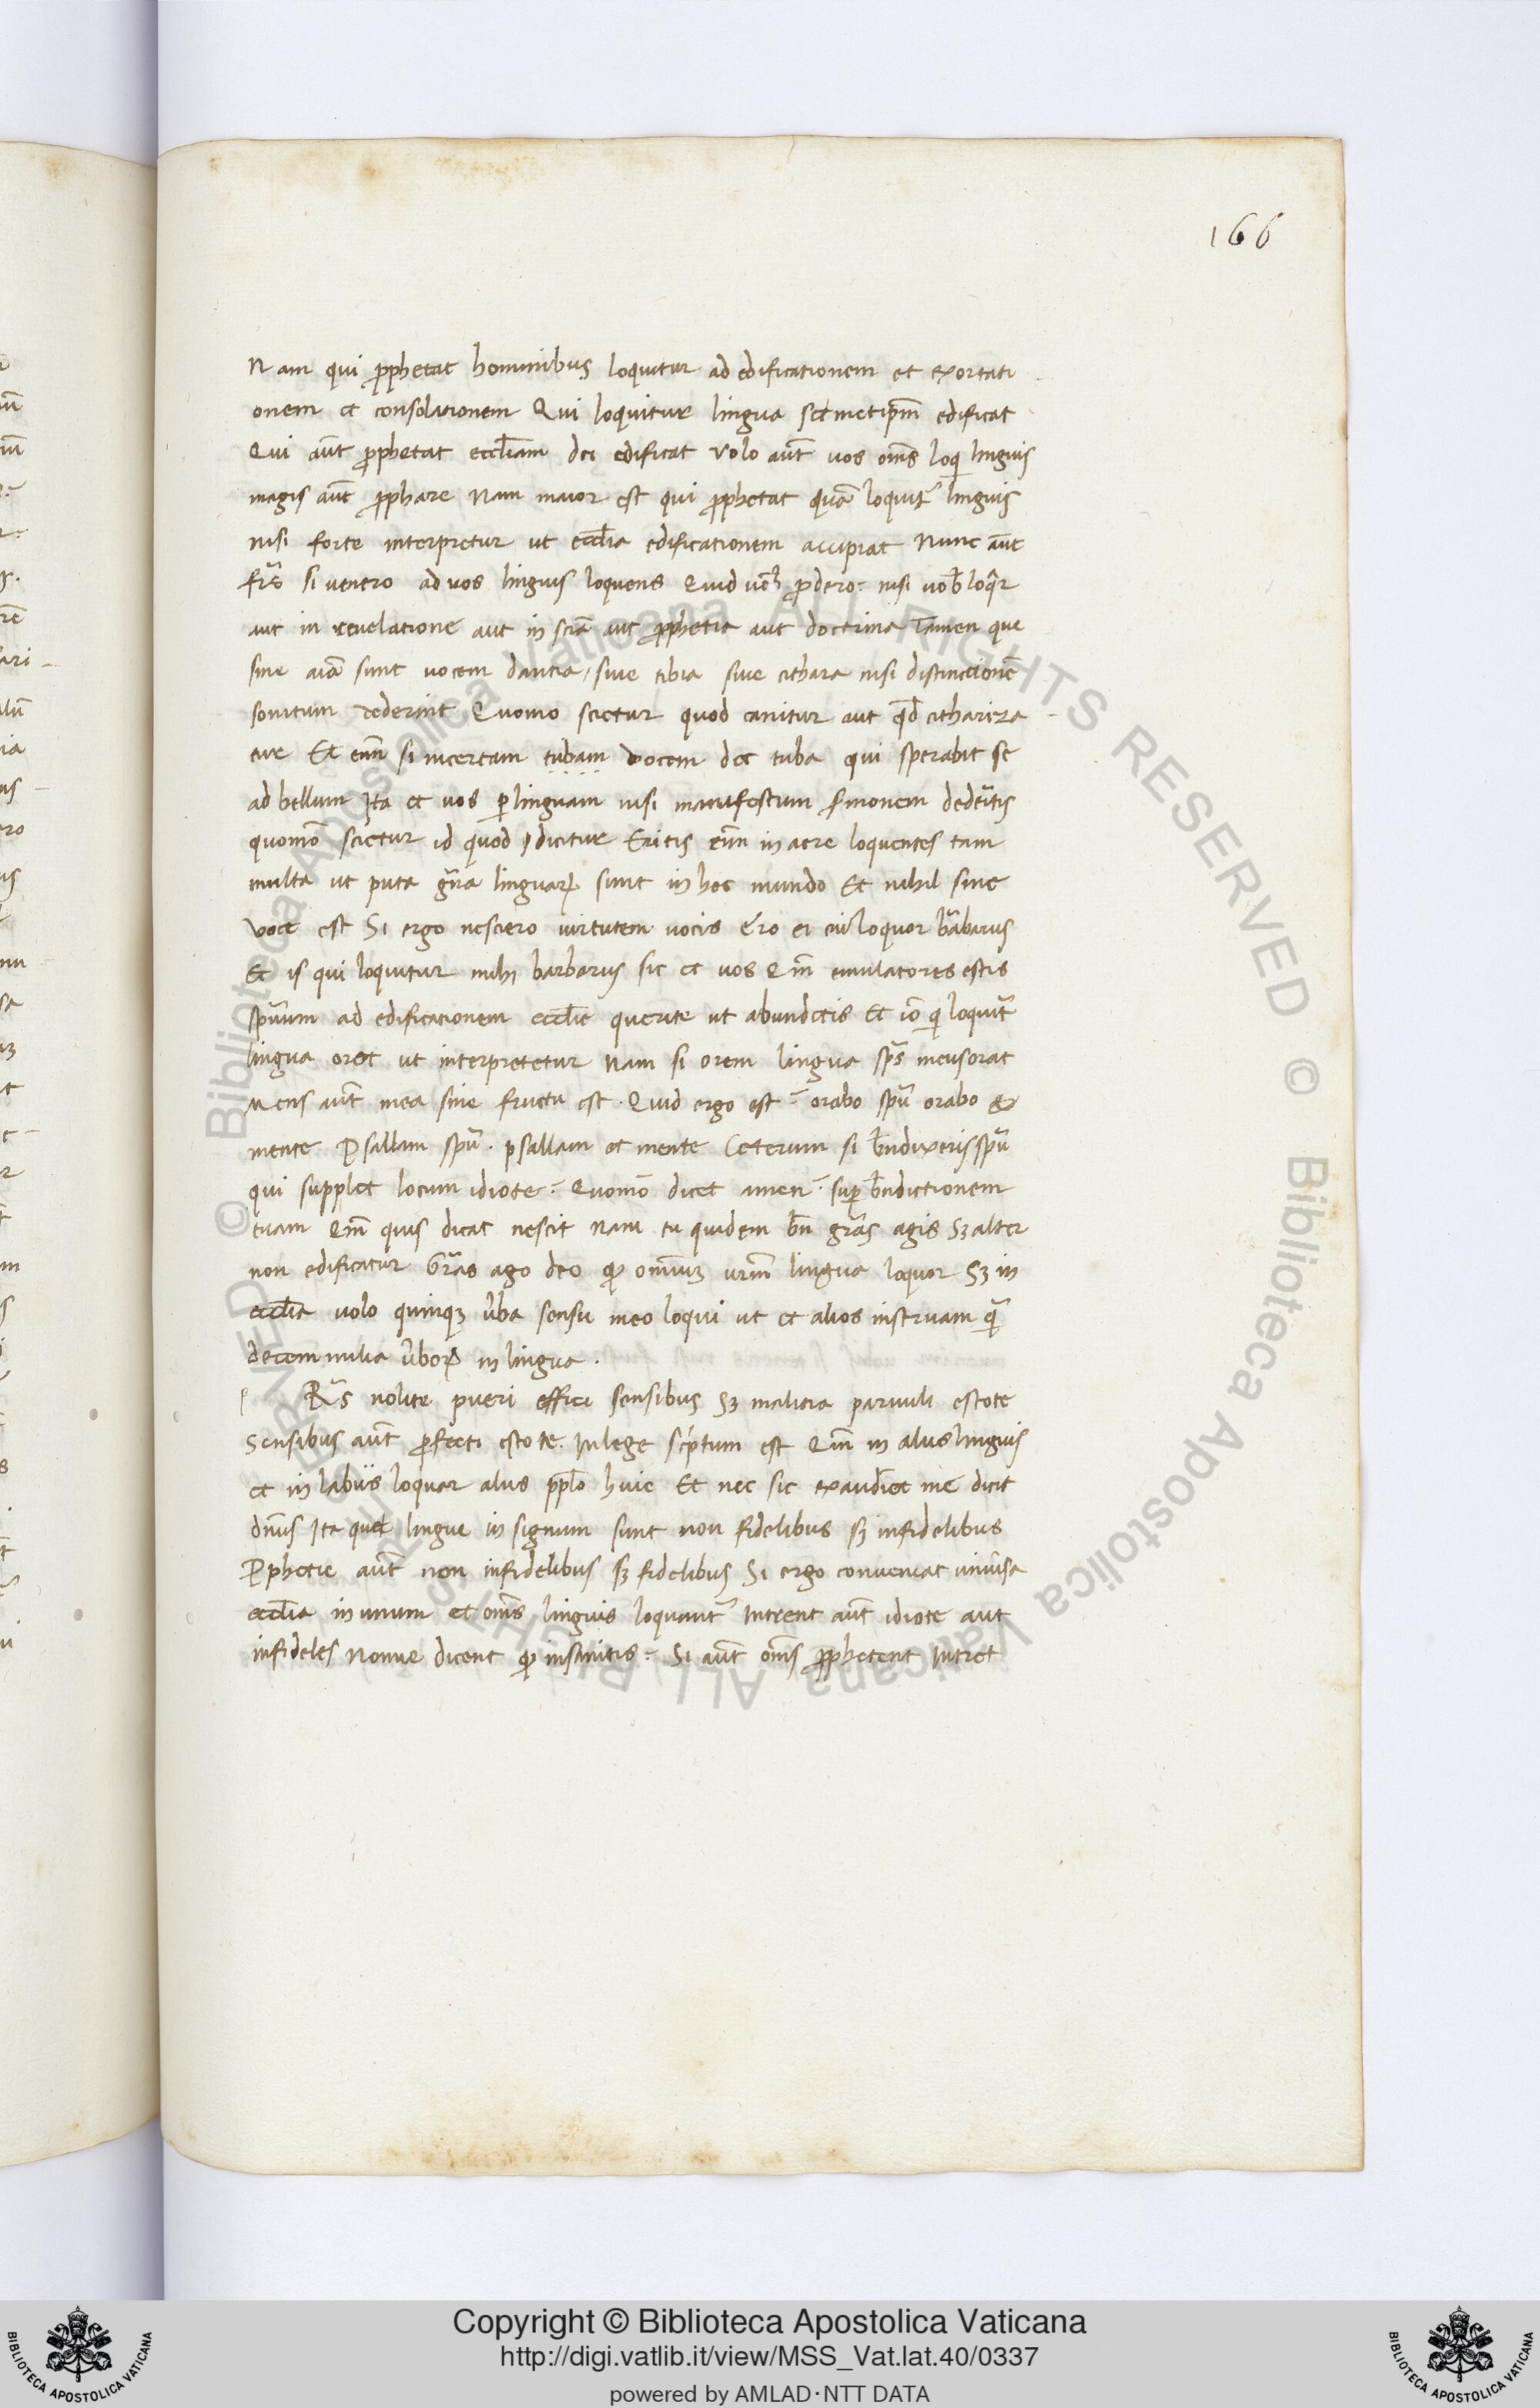 166
Nam qui ꝓphetat hominibus loquitur ad edificationem et exortati
onem et consolationem Qui loquitur lingua semetip̄m edificat
Qui aūt ꝓphetat eccl̄iam dei edificat Volo aūt uos om̄s loqi linguis
magis aūt ꝓphare Nam maior est qui ꝓphetat quā loquit᷑ linguis
nisi forte interpretur ut eccl̄ia edificationem accipiat Nunc aūt
fr̄s si uenero ad uos linguis loquens Quid uob̄ ꝓdero: nisi uob̄ loqr
aut in reuelatione aut in sciā aut ꝓphetia aut doctrina Tamen que
sine aīa sunt uocem dantia, siue tibia siue cithara nisi distinctionē
sonitum dederint Quomo scietur quod canitur aut qd̄ cithariza
tur Et enī si incertam tubam vocem det tuba qui sperabit se
ad bellum Ita et uos ꝑ linguam nisi manifestum s̄monem dedeītis
quomō scietur id quod dicitur Eritis enī in aere loquentes tam
multa ut puta gn̄a linguaꝝ sunt in hoc mundo Et nihil sine
voce est Si ergo nesciero uirtutem uocis ero ei cui loquor bābarus
Et is qui loquitur mihi barbarus sic et uos Qm̄ emulatores estis
spūum ad edificationem eccl̄ie querite ut abundetis Et iō qi loquit᷑
lingua oret ut interpretetur Nam si orem lingua sp̄s meus orat
Mens aūt mea sine fructu est. Quid ergo est: orabo spū orabo &
mente Psallam spū. psallam et mente Ceterum si bn̄dixeris spū
qui supplet locum idiote: Quomō dicet amen: suꝑ bn̄dictionem
tuam Qm̄ quis dicat nescit Nam tu quidem bn̄ gr̄as agis Sꝫ alter
non edificatur Gr̄as ago deo ꝙ omniuꝫ ur̄m lingua loquor Sꝫ in
eccl̄ia volo quinqꝫ ūba sensu meo loqui ut et alios instruam qā
decem milia ūboꝝ in lingua.
f Rr̄s nolite pueri effici sensibus Sꝫ malicia paruuli estote
Sensibus aūt ꝑfecti estote. In lege sc̄ptum est Qm̄ in aliis linguis
et in labiis loquar aliis ppl̄o huic Et nec sic exaudiet me dicit
dn̄us Itaque lingue in signum sunt non fidelibus sꝫ infidelibus
Ꝓphetie aūt non infidelibus sꝫ fidelibus Si ergo conueniat uniūsa
eccl̄ia in unum et om̄s linguis loquant᷑ Intrent aūt idiote aut
infideles Nonne dicent ꝙ insanitis: Si aūt om̄s ꝓphetent Intret
© Biblioteca Apostolica Vaticana ALL RIGHTS RESERVED © Biblioteca Apostolica Vaticana ALL RIGHTS RESERVED
Copyright © Biblioteca Apostolica Vaticana
http://digi.vatlib.it/view/MSS_Vat.lat.40/0337
powered by AMLAD·NTT DATA
BIBLIOTECA APOSTOLICA VATICANA
BIBLIOTECA APOSTOLICA VATICANA